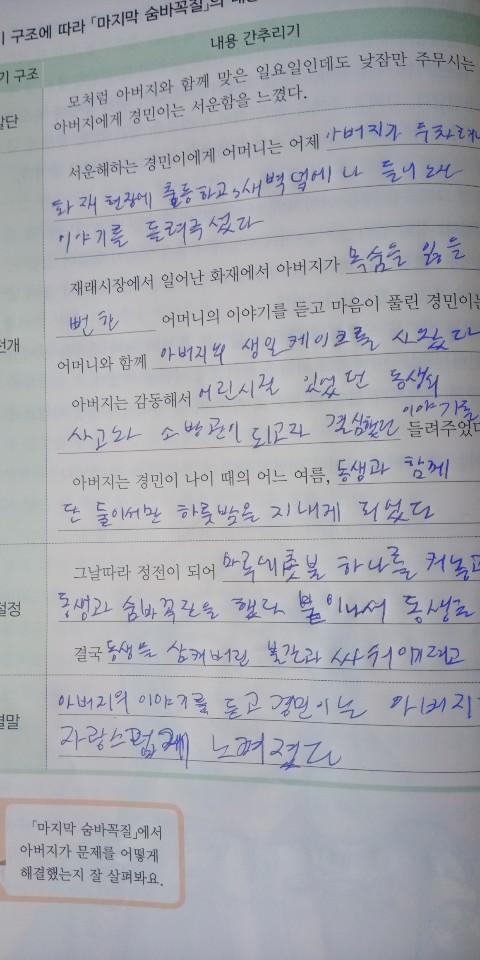 기 구조에 따라 「마지막 숨바꼭질」의 내용
내용 간추리기
기 구조
모처럼 아버지와 함께 맞은 일요일인데도 낮잠만 주무시는
발단
아버지에게 경민이는 서운함을 느꼈다.
서운해하는 경민이에게 어머니는 어제 아버지가 두차례나
화재 현장에 출동하고, 새벽 녘에나 들어오신
이야기를 들려주셨다
재래시장에서 일어난 화재에서 아버지가 목숨을 잃을
뻔한 어머니의 이야기를 듣고 마음이 풀린 경민이는
전개
어머니와 함께 아버지의 생일 케이크를 사왔다
아버지는 감동해서 어린시절 있었던 동생의
사고와 소방관이 되고자 결심했던 이야기를 들려주었다
아버지는 경민이 나이 때의 어느 여름, 동생과 함께
단 둘이서만 하룻밤을 지내게 되었다
그날따라 정전이 되어 마루에 촛불 하나를 켜놓고
절정
동생과 숨바꼭질을 했다 불이나서 동생을
결국 동생을 삼켜버린 불길과 싸워이기려고
아버지의 이야기를 듣고 경민이는 아버지
결말
자랑스럽게 느껴졌다
「마지막 숨바꼭질」에서
아버지가 문제를 어떻게
해결했는지 잘 살펴봐요.